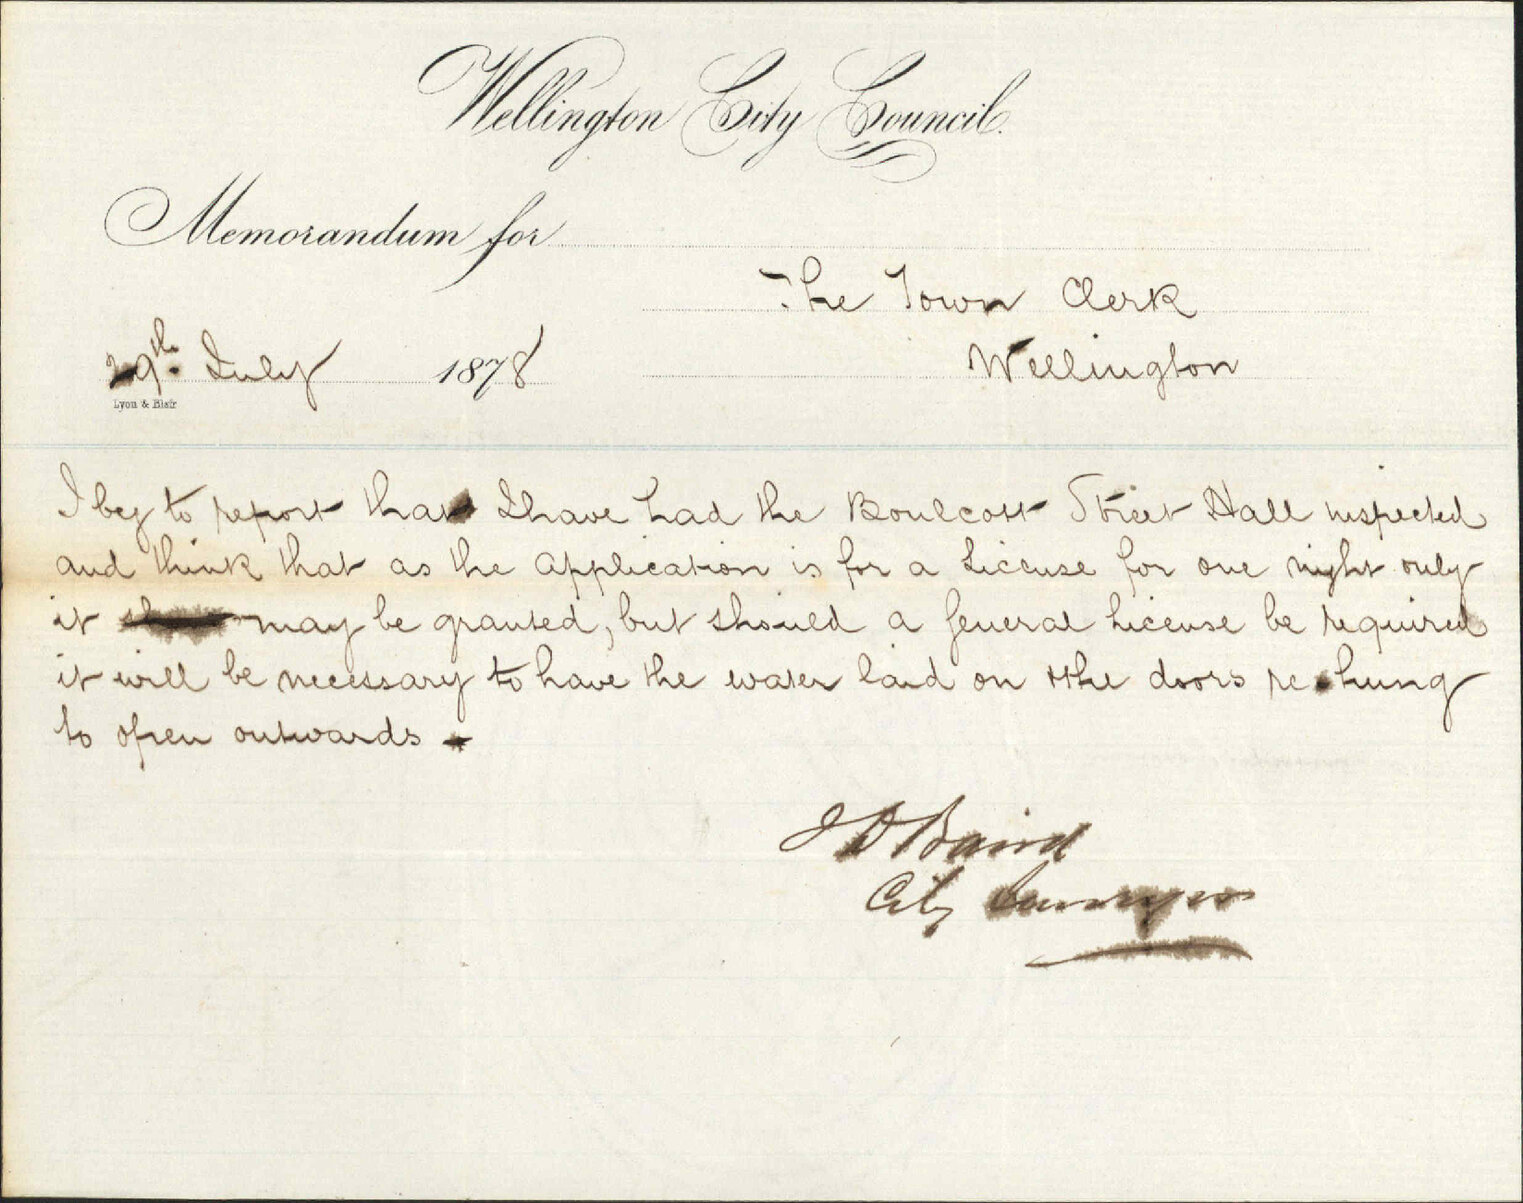 Wellington City Council.
Memorandum for
The Town Clerk
29th. July 1878
Wellington
Lyon & Blair
I beg to report that I have had the Boulcott Street Hall inspected
and think that as the application is for a License for one night only
it may be granted, but should a general license be required
it will be necessary to have the water laid on & the doors re-hung
to open outwards.
J D Baird
City Surveyor